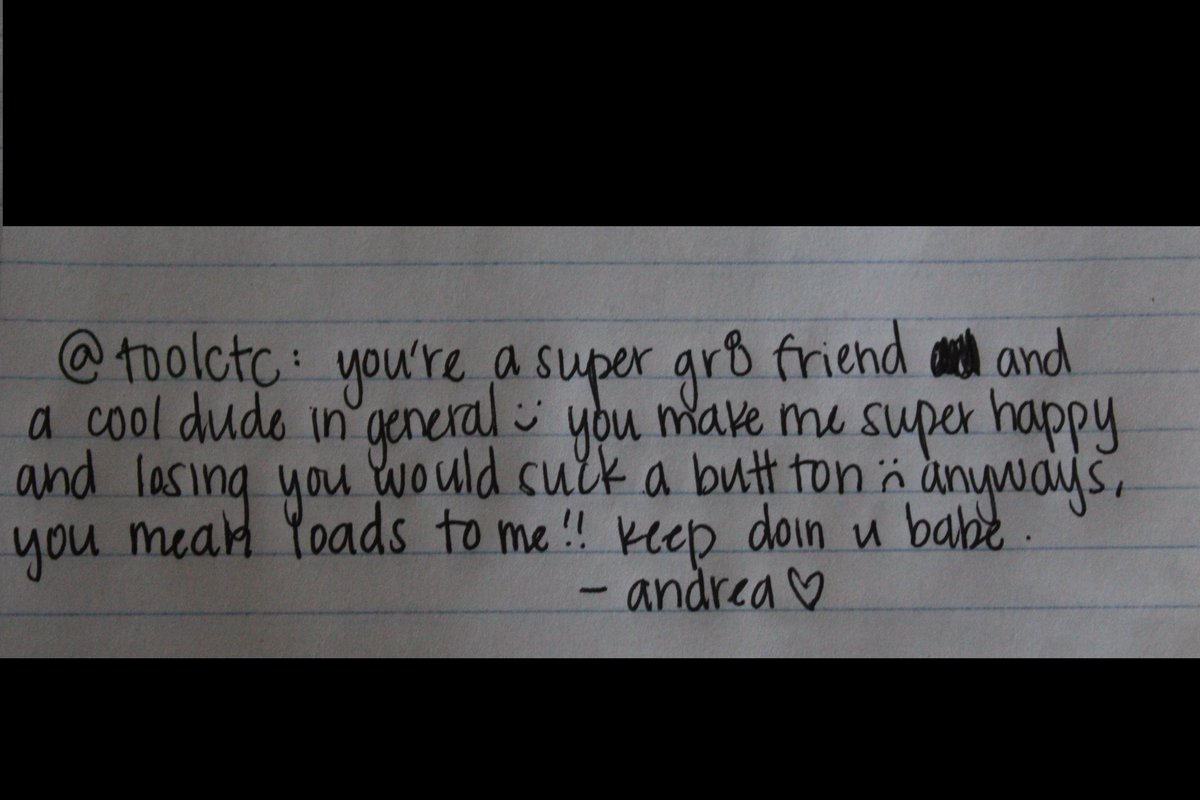 @toolctc: you're a super gr8 friend and
a cool dude in general :) you make me super happy
and losing you would suck a butt ton :( anyways,
you mean loads to me!! keep doin u babe.
- andrea ♡